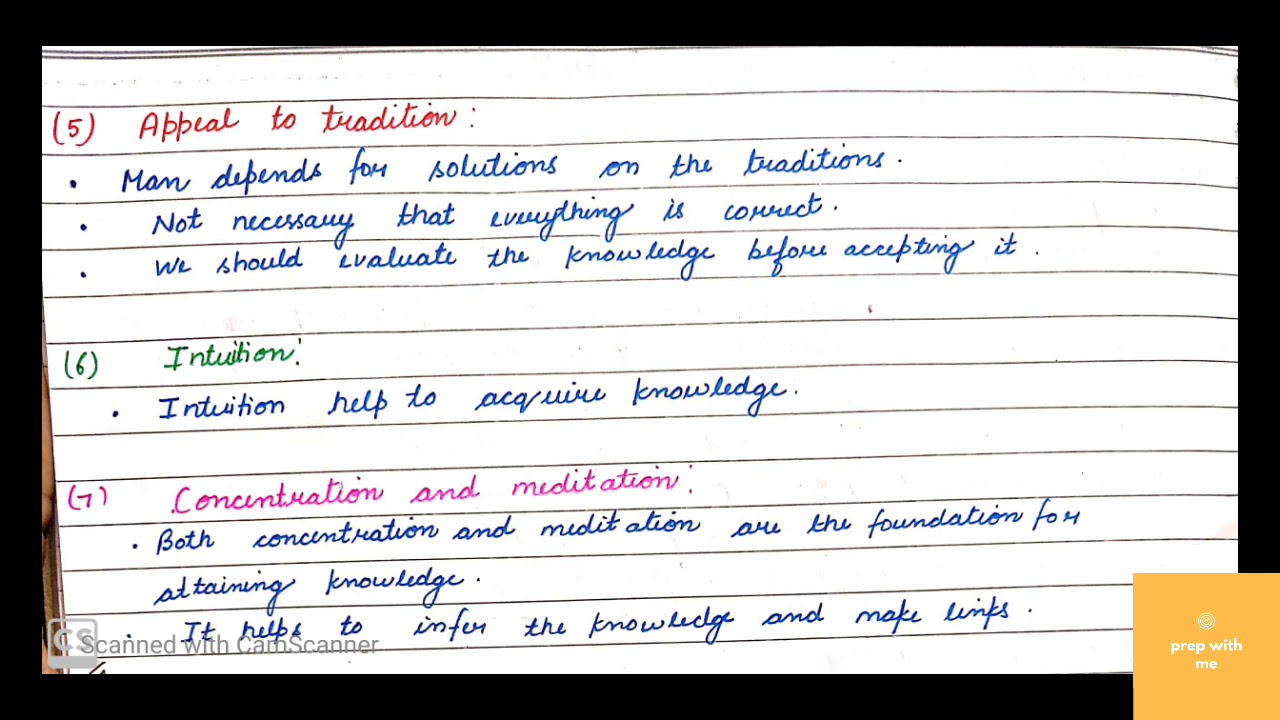 (5) Appeal to tradition:
• Man depends for solutions on the traditions.
• Not necessary that everything is correct.
• We should evaluate the knowledge before accepting it.
(6) Intuition:
• Intuition help to acquire knowledge.
(7) Concentration and meditation:
• Both concentration and meditation are the foundation for
attaining knowledge.
• It helps to infer the knowledge and make links.
CS Scanned with CamScanner
prep with
me